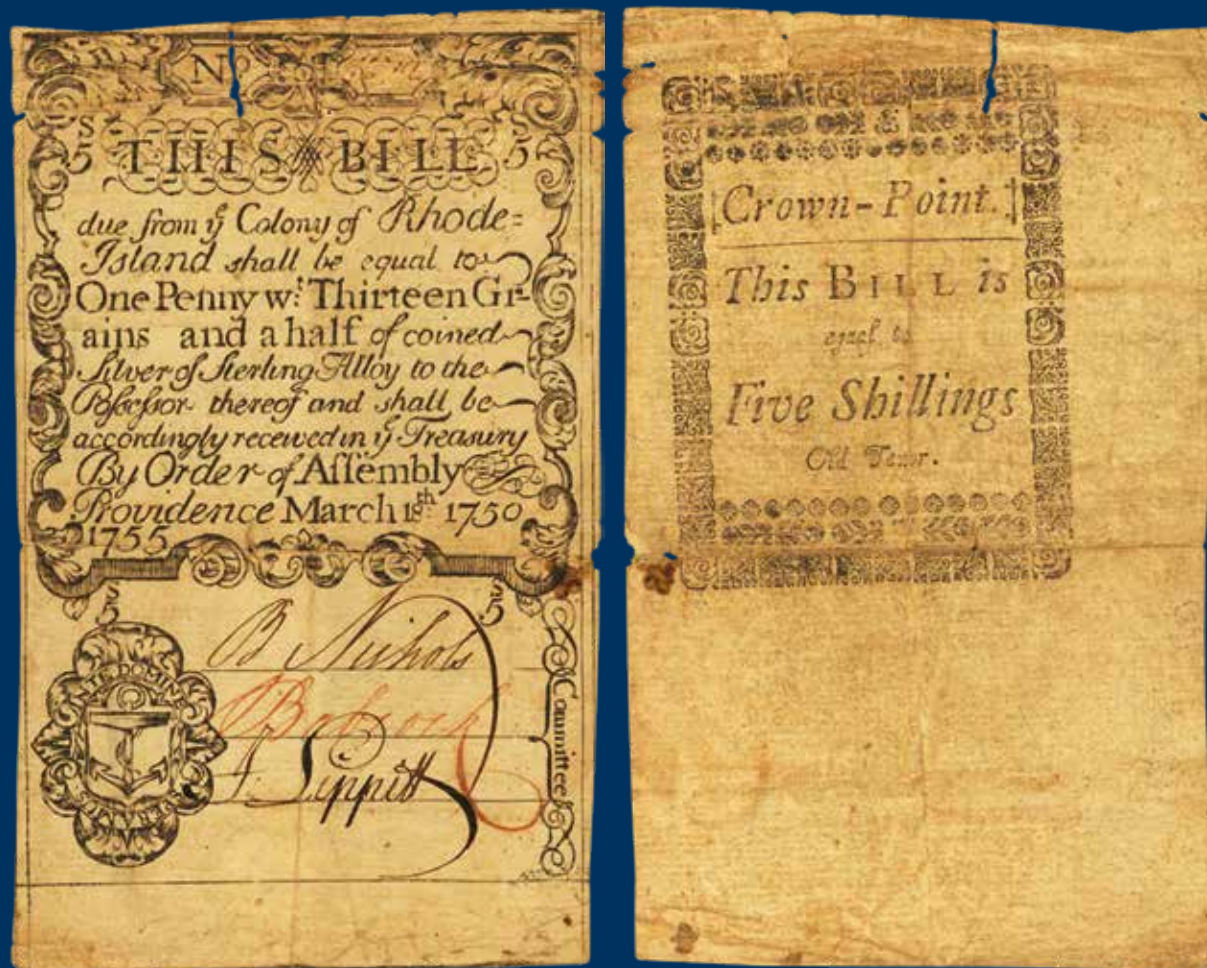 No
S 5 THIS BILL S 5
due from yͤ Colony of Rhode=
Island shall be equal to
One Penny wͭ: Thirteen Gr-
ains and a half of coined
Silver of Sterling Alloy to the
Poſseſsor thereof and shall be
accordingly received in yͤ Treasury
By Order of Aſſembly
Providence March 18th 1750
1755
S 5 S 5
B Nichols
Babcock
J. Lippitt
Committee
Crown-Point.
This BILL is
equal to
Five Shillings
Old Tenor.